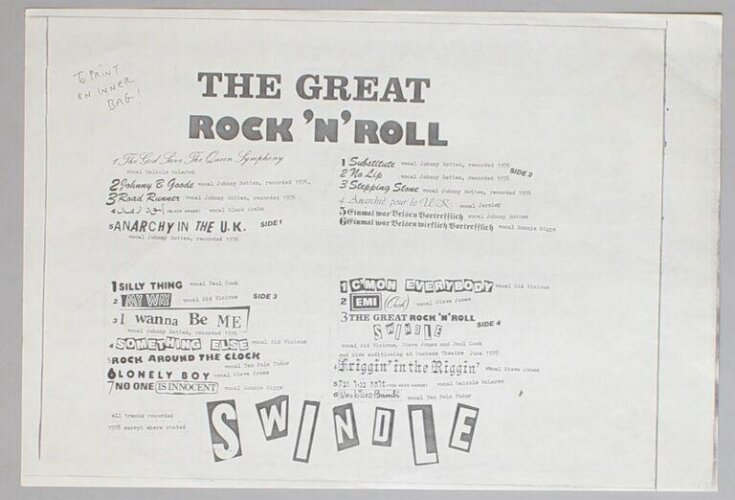 To PRINT
ON INNER
BAG!
THE GREAT
ROCK 'N' ROLL
1 The God Save The Queen Symphony
vocal Malcolm McLaren
2 Johnny B Goode vocal Johnny Rotten, recorded 1976,
3 Road Runner vocal Johnny Rotten, recorded 1976
4 (BLACK ARABS) vocal Black Arabs
5 ANARCHY IN THE U.K. SIDE 1
vocal Johnny Rotten, recorded 1976
1 Substitute vocal Johnny Rotten, recorded 1976
2 No Lip SIDE 2
vocal Johnny Rotten, recorded 1976
3 Stepping Stone vocal Johnny Rotten, recorded 1976
4 Anarchie pour le U.K. vocal Jerzier
5 Einmal war Belsen Vortrefflich vocal Johnny Rotten
6 Einmal war Belsen wirklich Vortrefflich vocal Ronnie Biggs
1 SILLY THING vocal Paul Cook
2 MY WAY vocal Sid Vicious SIDE 3
3 I wanna Be ME
vocal Johnny Rotten, recorded 1976
4 SOMETHING ELSE vocal Sid Vicious
5 ROCK AROUND THE CLOCK
vocal Ten Pole Tudor
6 LONELY BOY vocal Steve Jones
7 NO ONE IS INNOCENT vocal Ronnie Biggs
all tracks recorded
1978 except where stated
1 C'MON EVERYBODY vocal Sid Vicious
2 EMI (Orch) vocal Steve Jones
3 THE GREAT ROCK 'N' ROLL
SWINDLE SIDE 4
vocal Sid Vicious, Steve Jones and Paul Cook
and kids auditioning at Duchess Theatre June 1978
4 Friggin' in the Riggin' vocal Steve Jones
5 vocal Malcolm McLaren
6 Who Killed Bambi vocal Ten Pole Tudor
SWINDLE